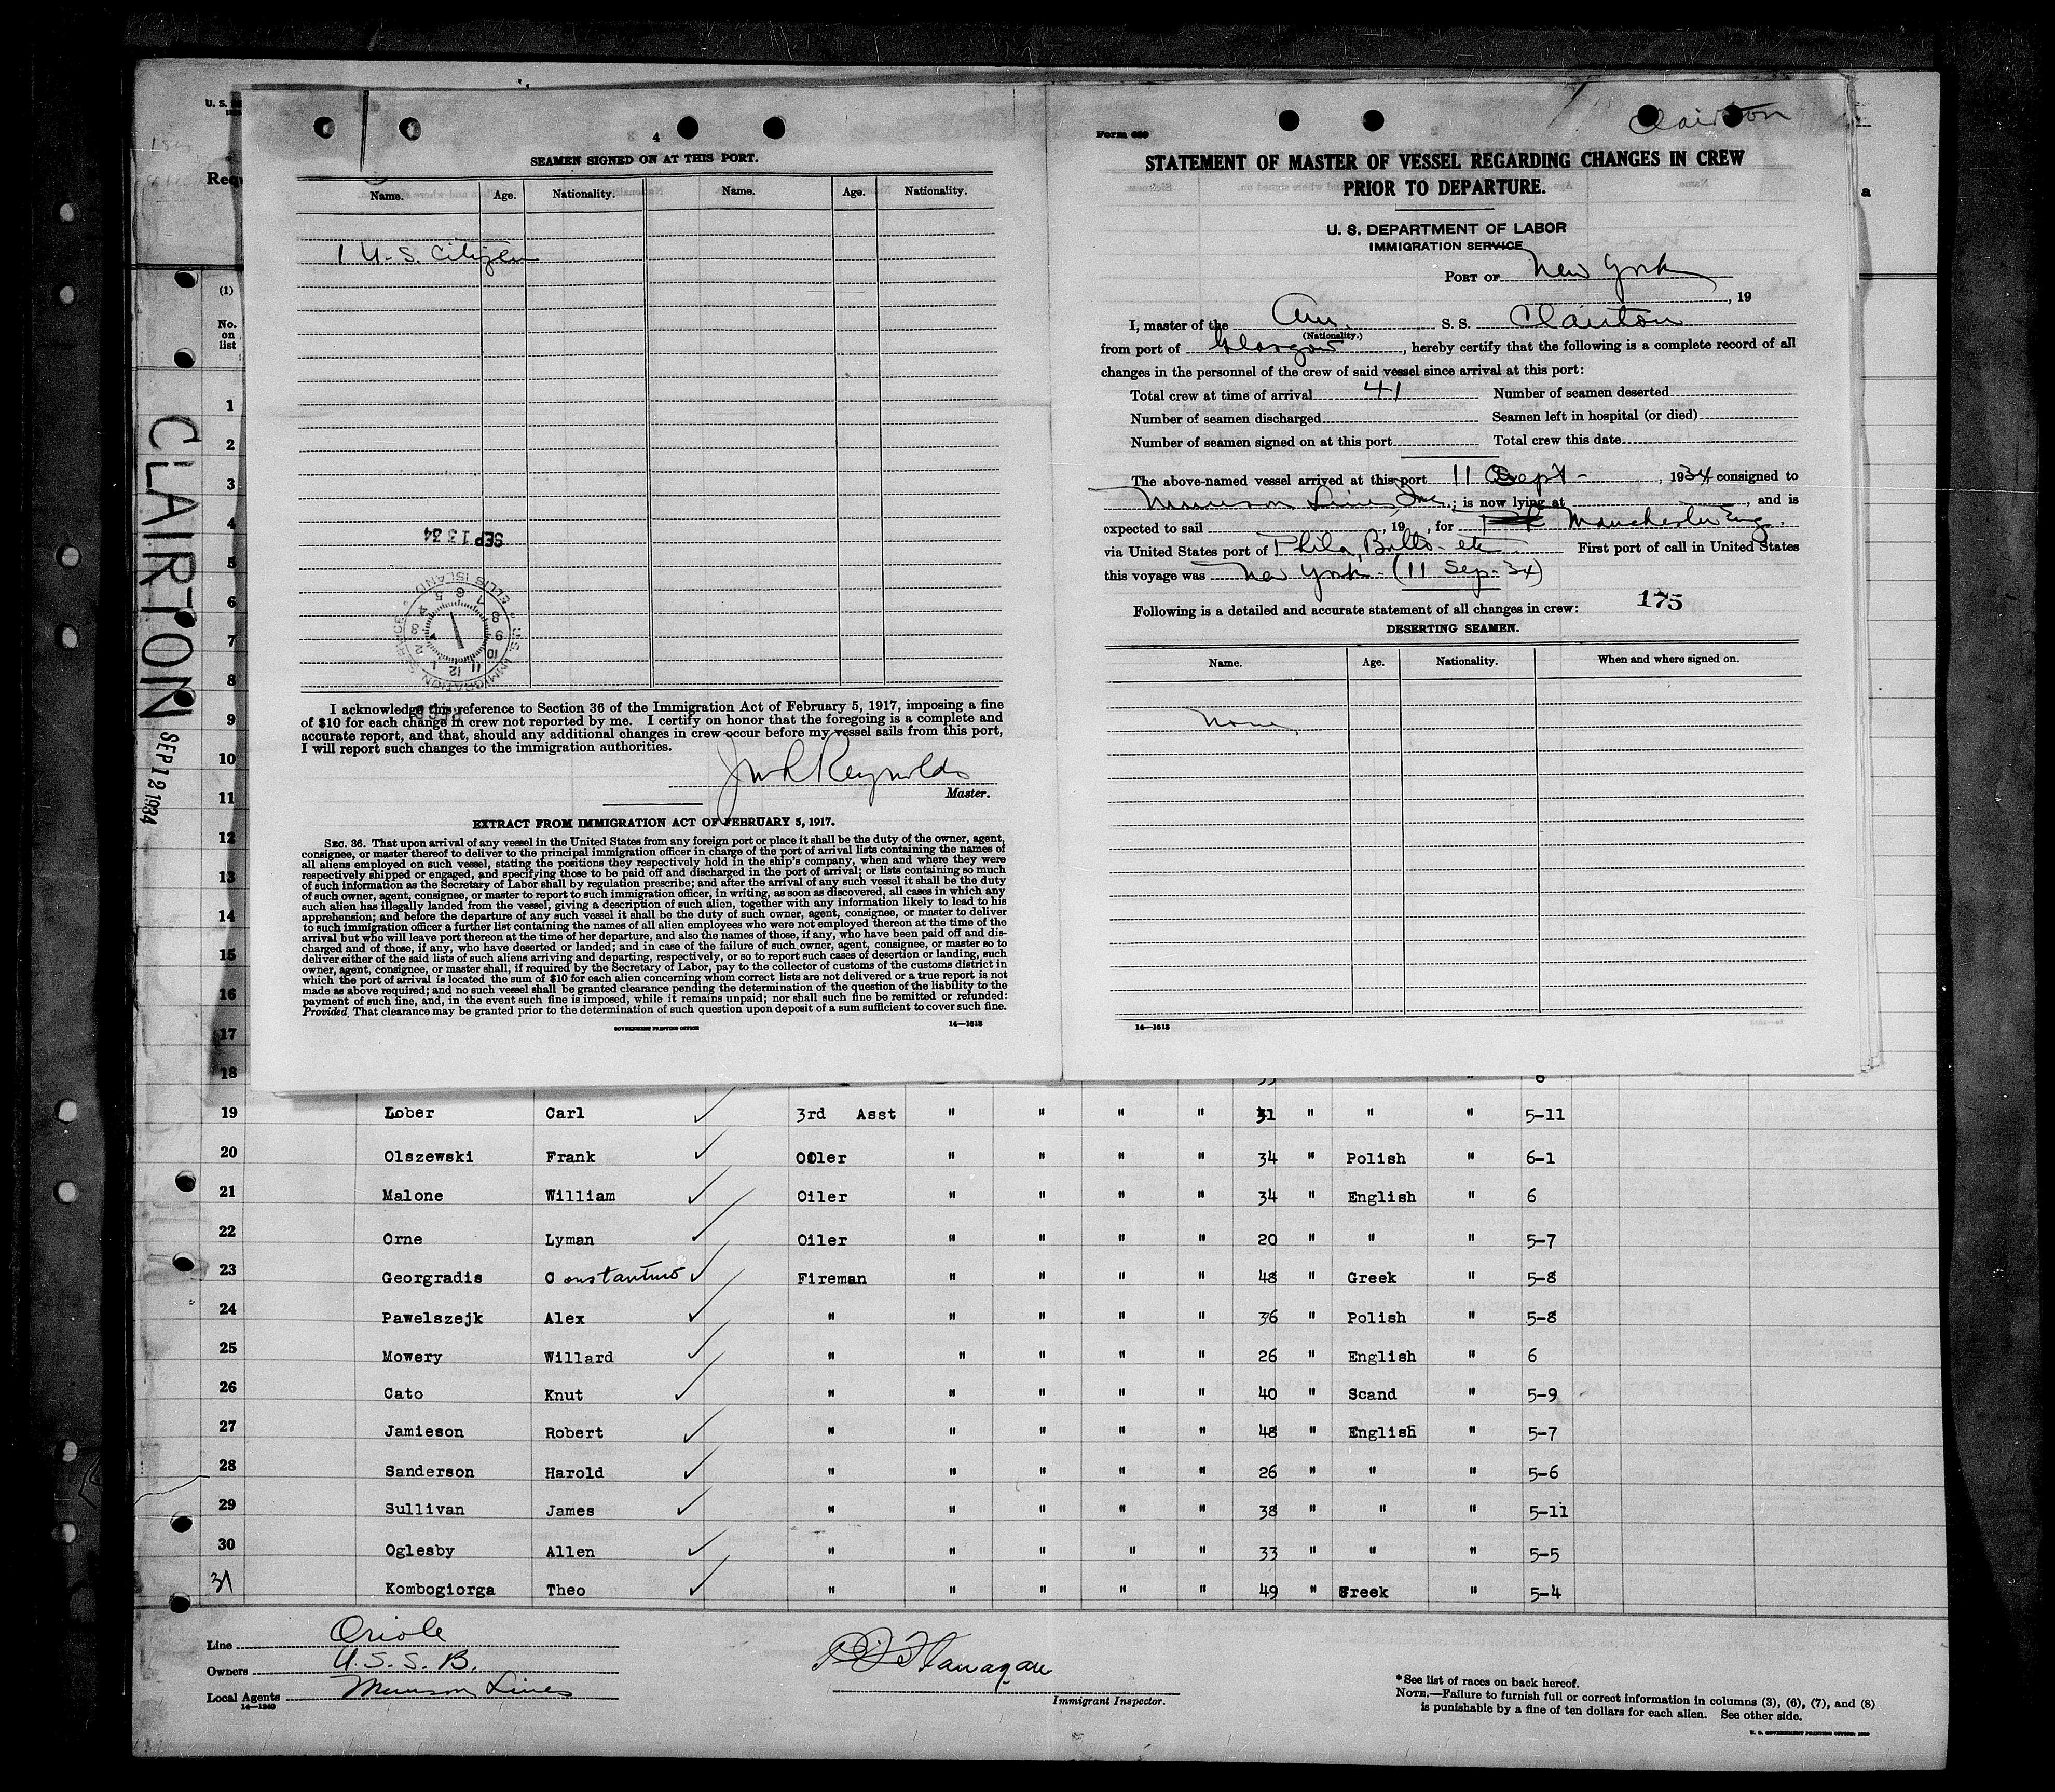 4
SEAMEN SIGNED ON AT THIS PORT.
Name. Age. Nationality. Name. Age. Nationality.
1 U.S. Citizen
SEP 13 34
U.S. IMMIGRATION SERVICE ELLIS ISLAND
1 2 3 4 5 6 7 8 9 10 11 12
I acknowledge this reference to Section 36 of the Immigration Act of February 5, 1917, imposing a fine
of $10 for each change in crew not reported by me. I certify on honor that the foregoing is a complete and
accurate report, and that, should any additional changes in crew occur before my vessel sails from this port,
I will report such changes to the immigration authorities.
Reynolds
Master.
EXTRACT FROM IMMIGRATION ACT OF FEBRUARY 5, 1917.
SEC. 36. That upon arrival of any vessel in the United States from any foreign port or place it shall be the duty of the owner, agent,
consignee, or master thereof to deliver to the principal immigration officer in charge of the port of arrival lists containing the names of
all aliens employed on such vessel, stating the positions they respectively hold in the ship's company, when and where they were
respectively shipped or engaged, and specifying those to be paid off and discharged in the port of arrival; or lists containing so much
of such information as the Secretary of Labor shall by regulation prescribe; and after the arrival of any such vessel it shall be the duty
of such owner, agent, consignee, or master to report to such immigration officer, in writing, as soon as discovered, all cases in which any
such alien has illegally landed from the vessel, giving a description of such alien, together with any information likely to lead to his
apprehension; and before the departure of any such vessel it shall be the duty of such owner, agent, consignee, or master to deliver
to such immigration officer a further list containing the names of all alien employees who were not employed thereon at the time of the
arrival but who will leave port thereon at the time of her departure, and also the names of those, if any, who have been paid off and dis-
charged and of those, if any, who have deserted or landed; and in case of the failure of such owner, agent, consignee, or master so to
deliver either of the said lists of such aliens arriving and departing, respectively, or so to report such cases of desertion or landing, such
owner, agent, consignee, or master shall, if required by the Secretary of Labor, pay to the collector of customs of the customs district in
which the port of arrival is located the sum of $10 for each alien concerning whom correct lists are not delivered or a true report is not
made as above required; and no such vessel shall be granted clearance pending the determination of the question of the liability to the
payment of such fine, and, in the event such fine is imposed, while it remains unpaid; nor shall such fine be remitted or refunded:
Provided, That clearance may be granted prior to the determination of such question upon deposit of a sum sufficient to cover such fine.
GOVERNMENT PRINTING OFFICE 14—1613
Clairton
Form 689
STATEMENT OF MASTER OF VESSEL REGARDING CHANGES IN CREW
PRIOR TO DEPARTURE.
U. S. DEPARTMENT OF LABOR
IMMIGRATION SERVICE
PORT OF New York
, 19
I, master of the Am. S. S. Clairton
(Nationality.)
from port of Glasgow, hereby certify that the following is a complete record of all
changes in the personnel of the crew of said vessel since arrival at this port:
Total crew at time of arrival 41 Number of seamen deserted
Number of seamen discharged Seamen left in hospital (or died)
Number of seamen signed on at this port Total crew this date
The above-named vessel arrived at this port 11 Sept - , 1934 consigned to
Munson Line, Inc.; is now lying at , and is
expected to sail , 19 , for Manchester Eng.
via United States port of Phila, Balto - etc. First port of call in United States
this voyage was New York - (11 Sep. 34)
Following is a detailed and accurate statement of all changes in crew: 175
DESERTING SEAMEN.
Name. Age. Nationality. When and where signed on.
None
14—1613
U. S.
Req
a
CLAIRTON SEP 12 1934
(1)
No.
on
list
1
2
3
4
5
6
7
8
9
10
11
12
13
14
15
16
17
18
19 Lober Carl 3rd Asst " " " " 31 " " " 5-11
20 Olszewski Frank Oiler " " " " 34 " Polish " 6-1
21 Malone William Oiler " " " " 34 " English " 6
22 Orne Lyman Oiler " " " " 20 " " " 5-7
23 Georgradis Constantino Fireman " " " " 48 " Greek " 5-8
24 Pawelszejk Alex " " " " " 36 " Polish " 5-8
25 Mowery Willard " " " " " 26 " English " 6
26 Cato Knut " " " " " 40 " Scand " 5-9
27 Jamieson Robert " " " " " 48 " English " 5-7
28 Sanderson Harold " " " " " 26 " " " 5-6
29 Sullivan James " " " " " 38 " " " 5-11
30 Oglesby Allen " " " " " 33 " " " 5-5
31 Kombogiorga Theo " " " " " 49 " Greek " 5-4
Line Oriole
Owners U. S. S. B.
Local Agents Munson Lines
14—1240
Flanagan
Immigrant Inspector.
* See list of races on back hereof.
NOTE.—Failure to furnish full or correct information in columns (3), (6), (7), and (8)
is punishable by a fine of ten dollars for each alien. See other side.